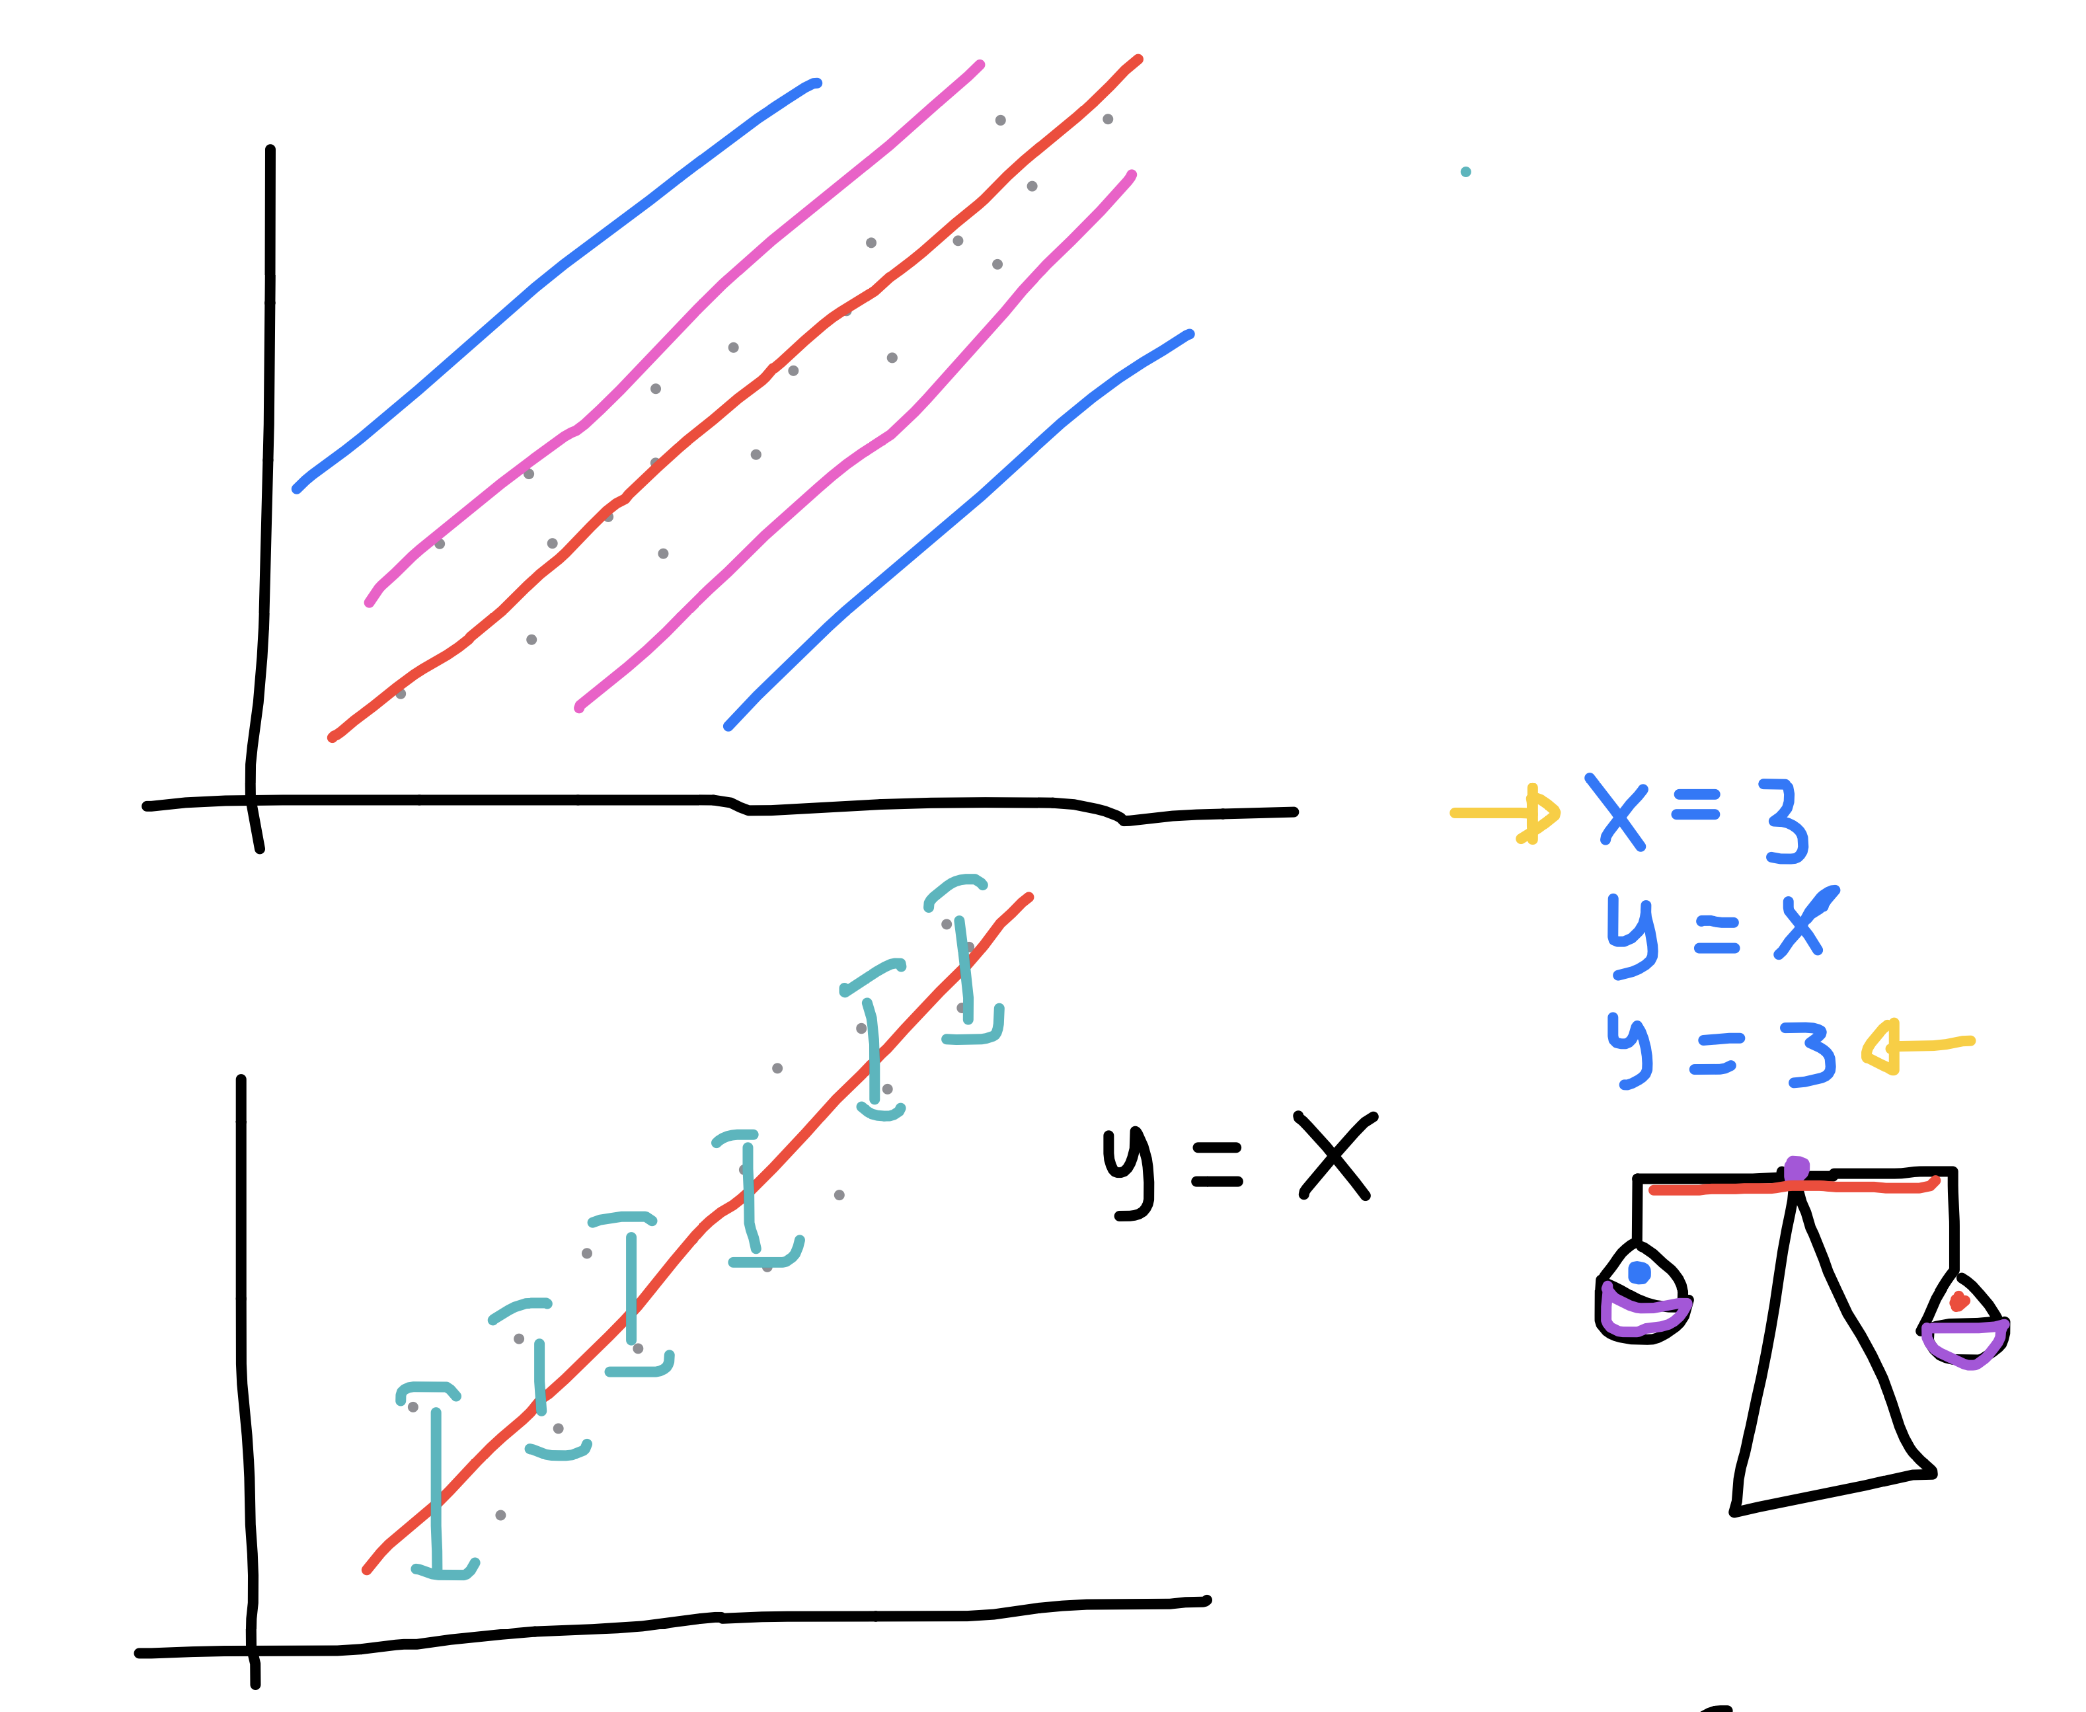 x = 3
y = x
y = 3
y = x